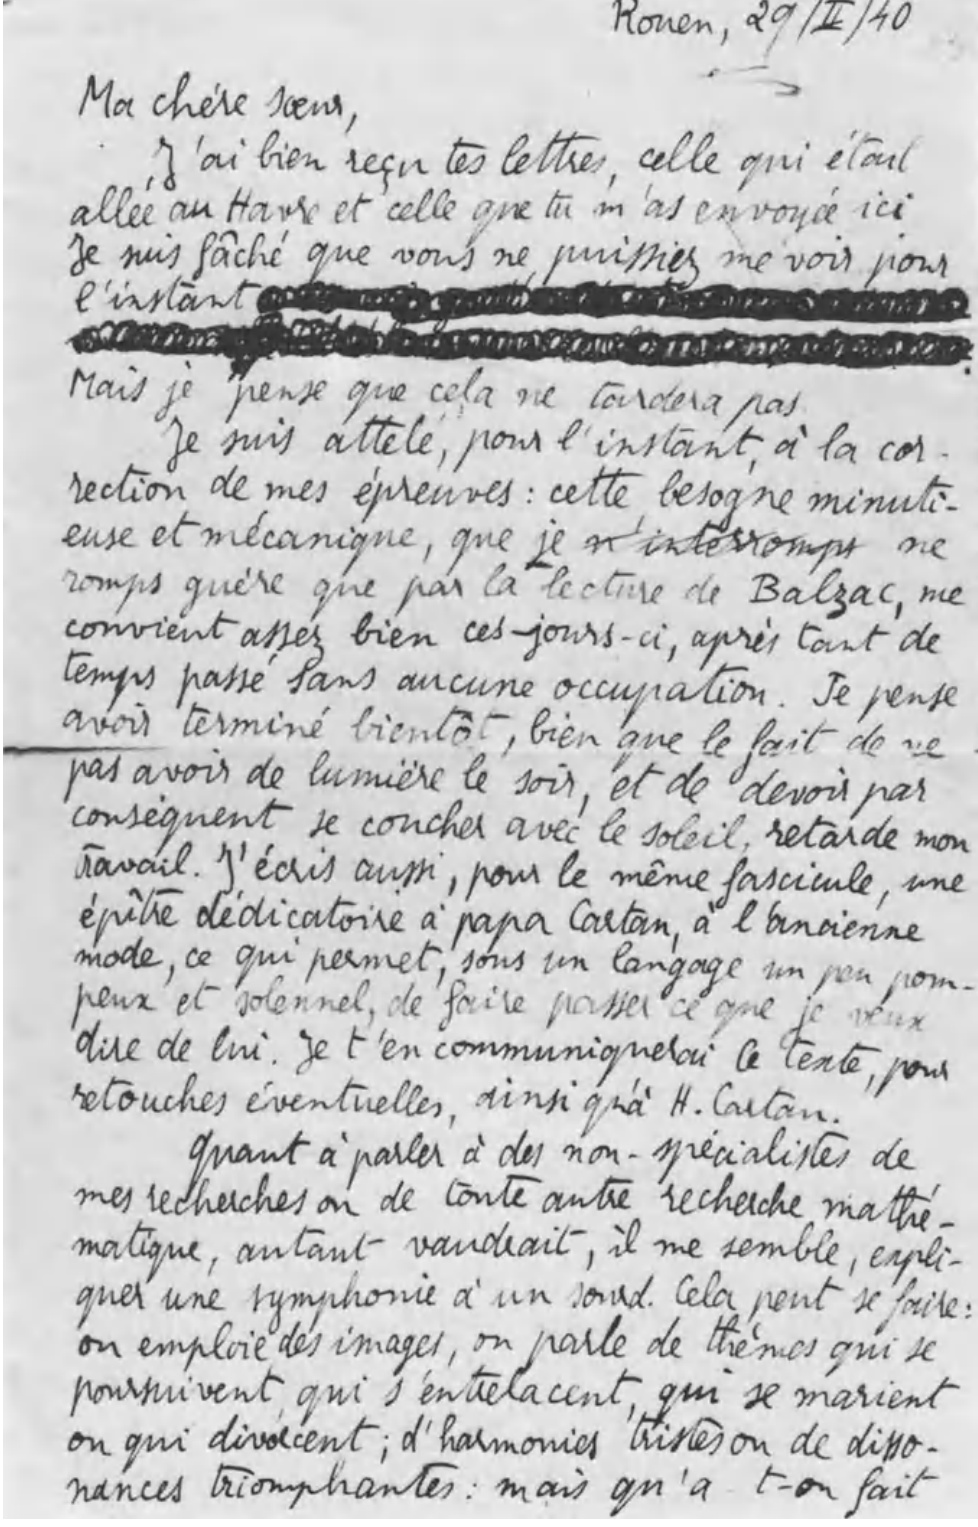 Rouen, 29/II/40
Ma chère sœur,
J'ai bien reçu tes lettres, celle qui était
allée au Havre et celle que tu m'as envoyée ici
Je suis fâché que vous ne puissiez me voir pour
l'instant
Mais je pense que cela ne tardera pas.
Je suis attelé, pour l'instant, à la cor-
rection de mes épreuves : cette besogne minuti-
euse et mécanique, que je n'interromps ne
romps guère que par la lecture de Balzac, me
convient assez bien ces jours-ci, après tant de
temps passé sans aucune occupation. Je pense
avoir terminé bientôt, bien que le fait de ne
pas avoir de lumière le soir, et de devoir par
conséquent se coucher avec le soleil, retarde mon
travail. J'écris aussi, pour le même fascicule, une
épître dédicatoire à papa Cartan, à l'ancienne
mode, ce qui permet, sous un langage un peu pom-
peux et solennel, de faire passer ce que je veux
dire de lui. Je t'en communiquerai le texte, pour
retouches éventuelles, ainsi qu'à H. Cartan.
Quant à parler à des non-spécialistes de
mes recherches ou de toute autre recherche mathé-
matique, autant vaudrait, il me semble, expli-
quer une symphonie à un sourd. Cela peut se faire :
on emploie des images, on parle de thèmes qui se
poursuivent, qui s'entrelacent, qui se marient
ou qui divorcent ; d'harmonies tristes ou de disso-
nances triomphantes : mais qu'a-t-on fait